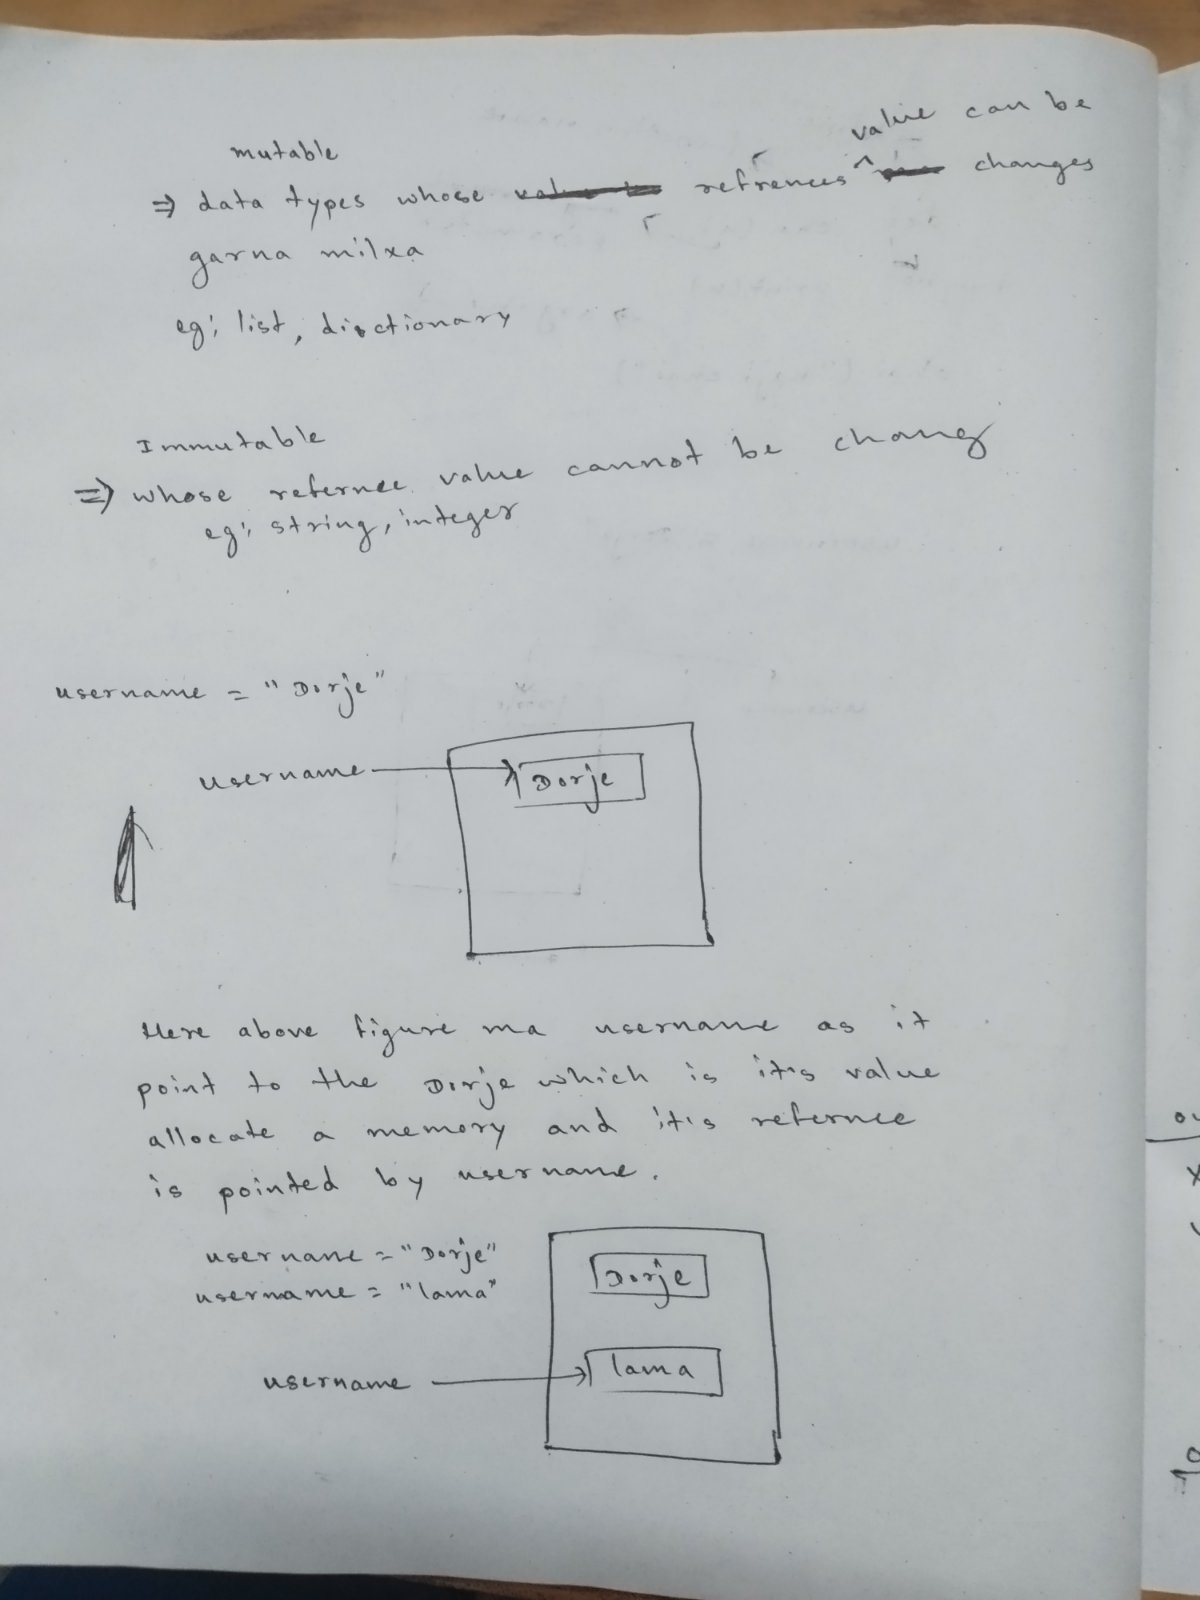 mutable
value can be
⇒ data types whose refrences ^ changes
garna milxa
eg: list, dictionary
Immutable
⇒ whose refernce value cannot be chang
eg: string, integer
username = "Dorje"
username
Dorje
Here above figure ma username as it
point to the Dorje which is it's value
allocate a memory and it's refernce
is pointed by username.
username = "Dorje"
username = "lama"
Dorje
lama
username